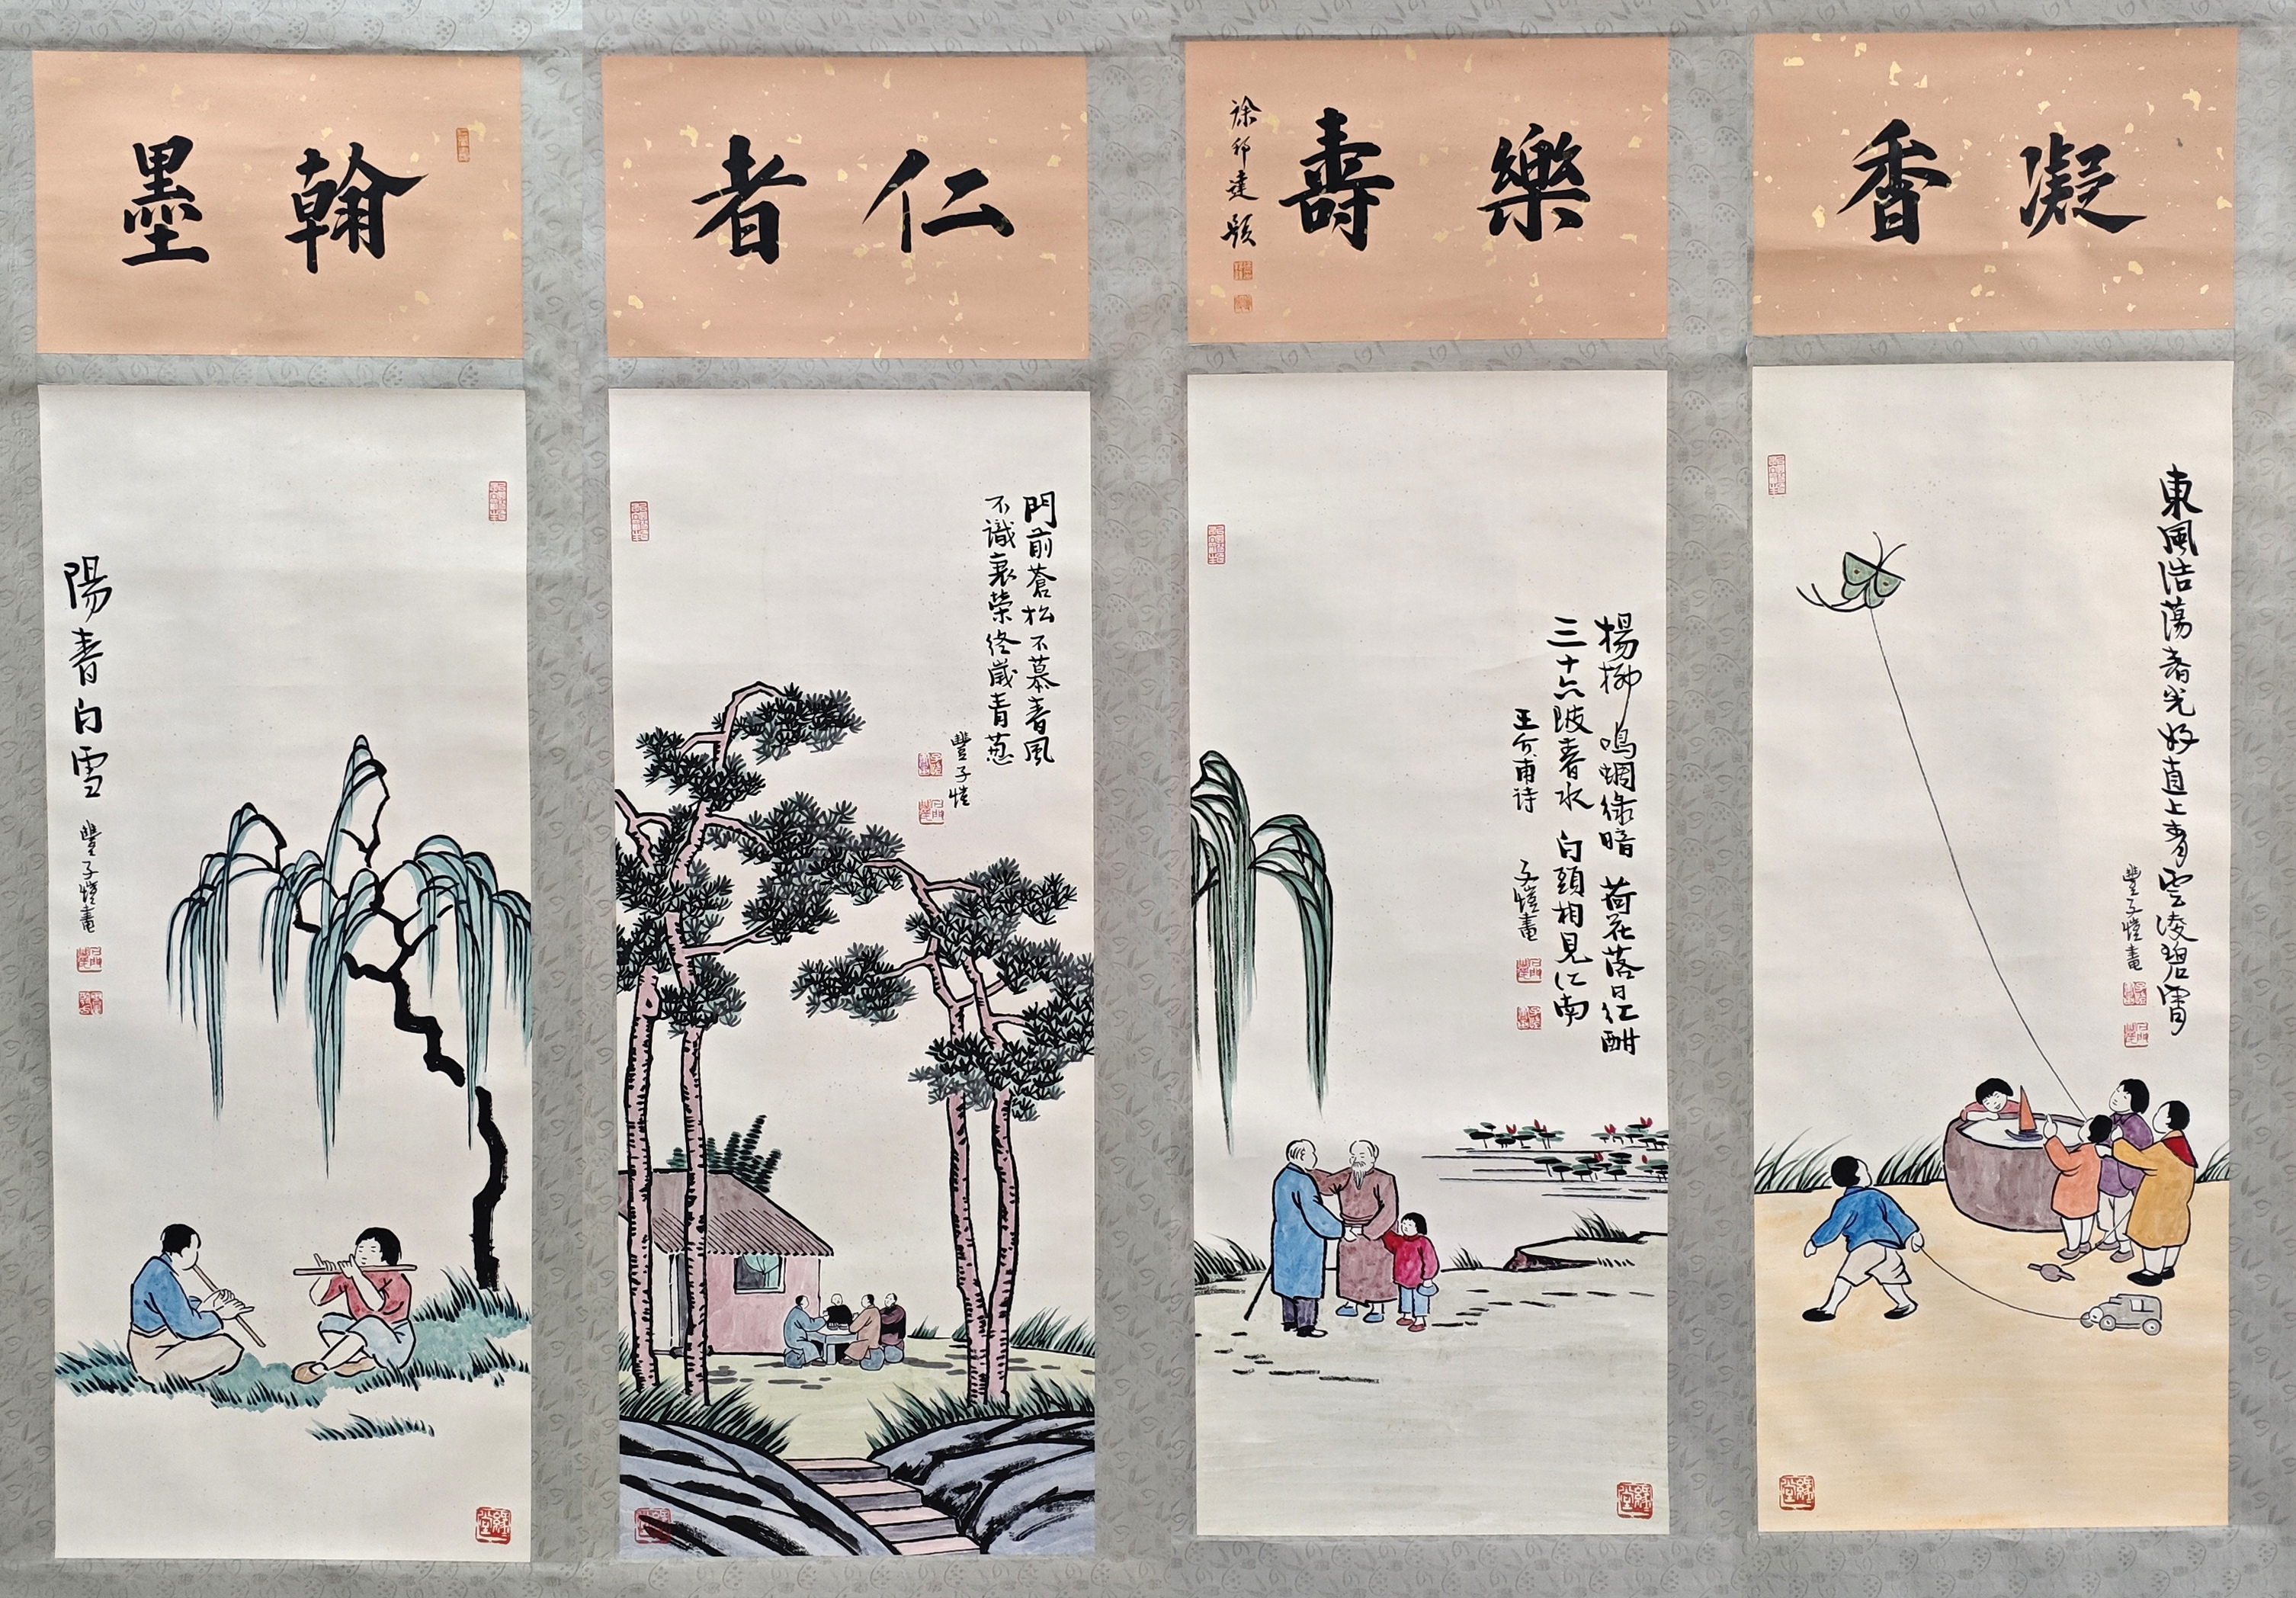 翰墨
陽春白雪
豐子愷畫
仁者
門前蒼松不慕春風
不識衰榮終歲青蔥
豐子愷
樂壽
徐邦達題
楊柳鳴蜩綠暗荷花落日紅酣
三十六陂春水白頭相見江南
王介甫诗
子愷畫
緣緣堂
凝香
東風浩蕩春光好直上青雲凌碧霄
豐子愷畫
緣緣堂